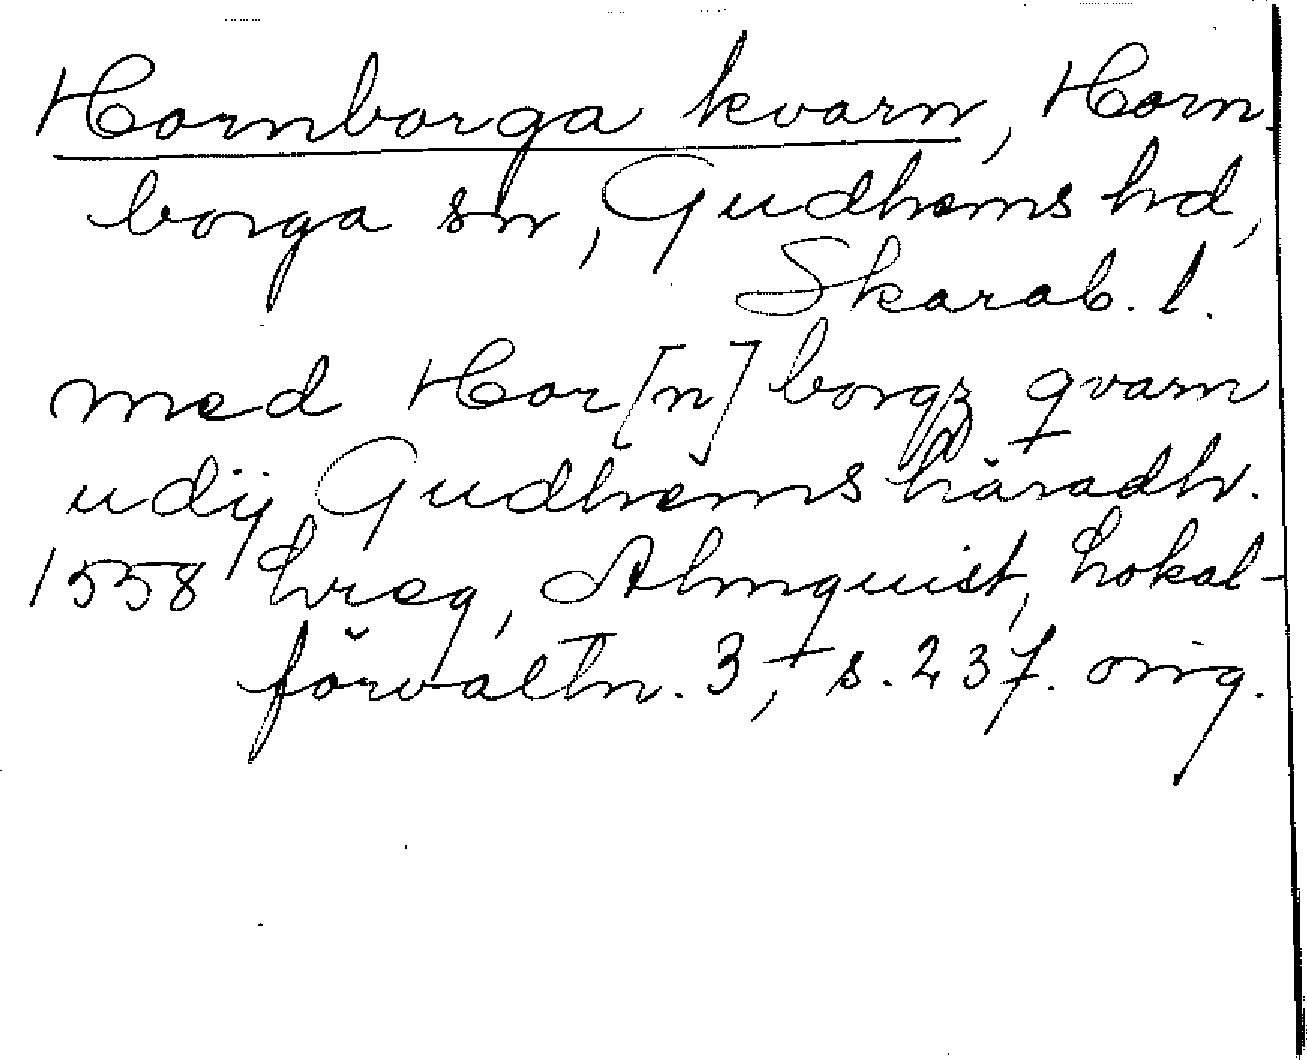 Hornborga kvarn, Horn-
borga sn, Gudhems hd,
Skarab. l.
med Hor[n]borgz qvarn
udij Gudhems häradh.
1558 hreg, Almquist, Lokal-
förvaltn. 3, s. 237. orig.